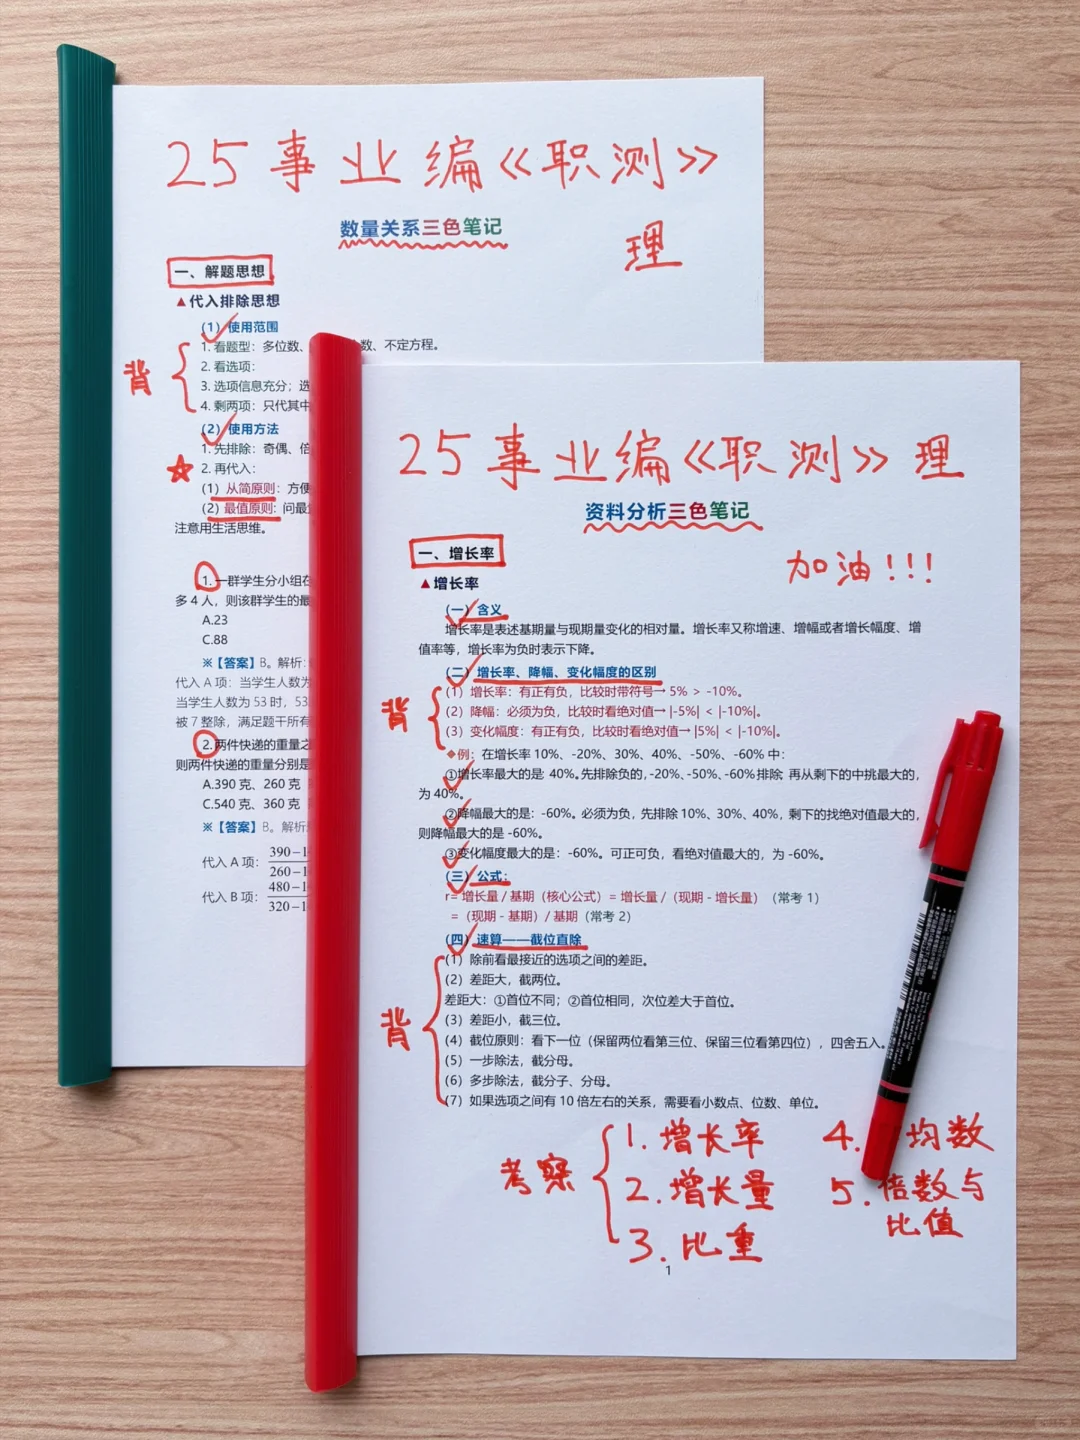 25事业编《职测》
数量关系三色笔记
理
一、解题思想
▲代入排除思想
(1) 使用范围
背
1. 看题型：多位数、 数、不定方程。
2. 看选项：
3. 选项信息充分；选
4. 剩两项：只代其中
(2) 使用方法
1. 先排除：奇偶、倍
2. 再代入：
(1) 从简原则：方便
(2) 最值原则：问最
注意用生活思维。
1. 一群学生分小组在
多 4 人，则该群学生的最
A.23
C.88
※【答案】B。解析：
代入 A 项：当学生人数为
当学生人数为 53 时，53
被 7 整除，满足题干所有
2. 两件快递的重量之
则两件快递的重量分别是
A.390 克、260 克
C.540 克、360 克
※【答案】B。解析
代入 A 项：390－1
260－1
代入 B 项：480－1
320－1
25事业编《职测》理
资料分析三色笔记
加油!!!
一、增长率
▲增长率
(一) 含义
增长率是表述基期量与现期量变化的相对量。增长率又称增速、增幅或者增长幅度、增
值率等，增长率为负时表示下降。
(二) 增长率、降幅、变化幅度的区别
背
(1) 增长率：有正有负，比较时带符号→ 5% > -10%。
(2) 降幅：必须为负，比较时看绝对值→ |-5%| < |-10%|。
(3) 变化幅度：有正有负，比较时看绝对值→ |5%| < |-10%|。
❖例：在增长率 10%、-20%、30%、40%、-50%、-60% 中：
①增长率最大的是 40%。先排除负的，-20%、-50%、-60% 排除 再从剩下的中挑最大的，
为 40%。
②降幅最大的是：-60%。必须为负，先排除 10%、30%、40%，剩下的找绝对值最大的，
则降幅最大的是 -60%。
③变化幅度最大的是：-60%。可正可负，看绝对值最大的，为 -60%。
(三) 公式：
r= 增长量 / 基期（核心公式）= 增长量 /（现期 - 增长量）（常考 1）
=（现期 - 基期）/ 基期（常考 2）
(四) 速算——截位直除
背
(1) 除前看最接近的选项之间的差距。
(2) 差距大，截两位。
差距大：①首位不同；②首位相同，次位差大于首位。
(3) 差距小，截三位。
(4) 截位原则：看下一位（保留两位看第三位、保留三位看第四位），四舍五入。
(5) 一步除法，截分母。
(6) 多步除法，截分子、分母。
(7) 如果选项之间有 10 倍左右的关系，需要看小数点、位数、单位。
考察
1. 增长率
2. 增长量
3. 比重
4. 均数
5. 倍数与
比值
1